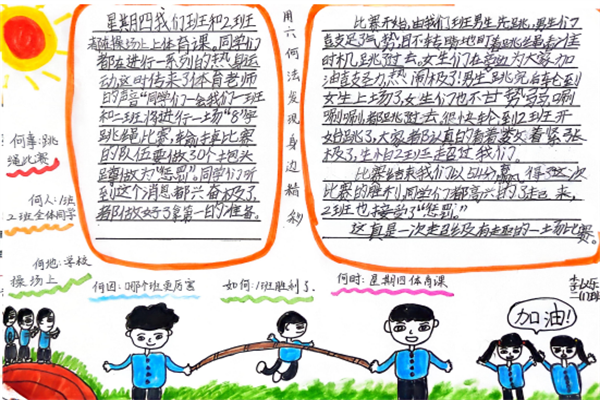 星期四我们班和2班
都在操场上上体育课。同学们
都在进行一系列的热身运
动这时传来了体育老师
的声音“同学们一会我们一班
和二班将进行一场“8”字
跳绳比赛,输掉比赛
的队伍要做30个抱头
蹲做为“惩罚”。同学们听
到这个消息都兴奋极了,
都做好了拿第一的准备。
用六何法发现身边精彩
比赛开始,由我们班男生先跳,男生们
鼓足了气势,目不转睛地盯着跳绳看准
时机跳过去,女生们在旁边为大家加
油鼓劲热闹极了!男生跳完后轮到
女生上场了,女生们也不甘势弱唰
唰唰都跳过去。很快轮到2班开
始跳了,大家都认真的看着
极了,生怕2班超过我们。
比赛结束我们以 得了这次
比赛的胜利,同学们都高兴的了起来,
2班也接受了“惩罚。”
这真是一次 的一场比赛。
何事:跳
绳比赛
何人:1班
2班全体同学
何地:学校
操场上
何因:哪个班更厉害
如何:1班胜利了.
何时:星期四体育课
加油!